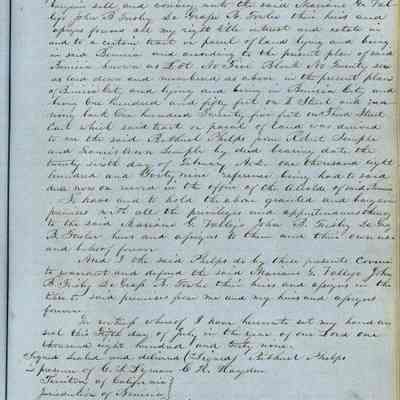 bargain sell and convey unto the said Mariano G. Val-
lejo John B. Frisby De Grasse B. Fowler their heirs and
assigns forever all my right title interest and estate in
and to a certain tract or parcel of land lying and being
in said Benicia and according to the present plan of said
Benicia known as Lot No Five Block No Twenty
as laid down and numbered as above in the present plan
of Benicia City and lying and being in Benicia City and
being one hundred and fifty feet on Street and run-
ning back One hundred Twenty five feet on First Street
East which said tract or parcel of land was deeded
to me the said Bethuel Phelps from Robert Semple
and by deed bearing date the
twenty sixth day of February A.D. one thousand eight
hundred and Forty nine reference being had to said
deed now on record in the office of the Alcalde of said
To have and to hold the above granted and bargained
premises with all the privileges and appurtenances thereof
to the said Mariano G. Vallejo John B. Frisby De Grasse
B. Fowler heirs and assigns to them and their own use
and behoof forever
And I the said Phelps do by these presents Covenant
to warrant and defend the said Mariano G. Vallejo John
B. Frisby De Grasse B. Fowler their heirs and assigns in the
title to said premises from me and my heirs and assigns
forever
In witness whereof I have hereunto set my hand and
seal this Fifth day of July in the year of our Lord one
thousand eight hundred and forty nine
Signed Sealed and delivered (Signed) Bethuel Phelps
In presence of C. S. Lyman C. R. Hayden
Territory of California }
Jurisdiction of Sonoma }